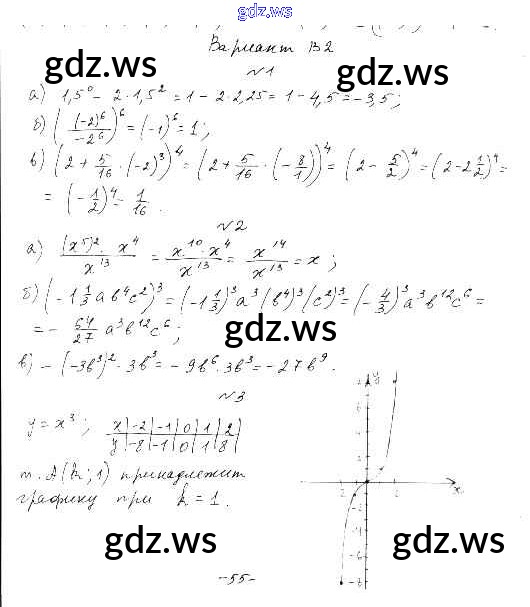 gdz.ws
Вариант В2
gdz.ws
gdz.ws
№1
а) 1,5⁰ - 2·1,5² = 1 - 2·2,25 = 1 - 4,5 = -3,5;
б) ((-2)⁶/-2⁶)⁶ = (-1)⁶ = 1;
в) (2 + 5/16 · (-2)³)⁴ = (2 + 5/16 · (-8/1))⁴ = (2 - 5/2)⁴ = (2 - 2 1/2)⁴ =
= (-1/2)⁴ = 1/16.
№2
а) (x⁵)²·x⁴/x¹³ = x¹⁰·x⁴/x¹³ = x¹⁴/x¹³ = x;
б) (-1 1/3 ab⁴c²)³ = (-1 1/3)³a³(b⁴)³(c²)³ = (-4/3)³a³b¹²c⁶ =
= - 64/27 a³b¹²c⁶;
gdz.ws
gdz.ws
в) -(-3b³)²·3b³ = -9b⁶·3b³ = -27b⁹.
№3
y = x³;
x | -2 | -1 | 0 | 1 | 2
y | -8 | -1 | 0 | 1 | 8
т. A(k; 1) принадлежит
графику при k = 1.
y
x
gdz.ws
gdz.ws
-55-